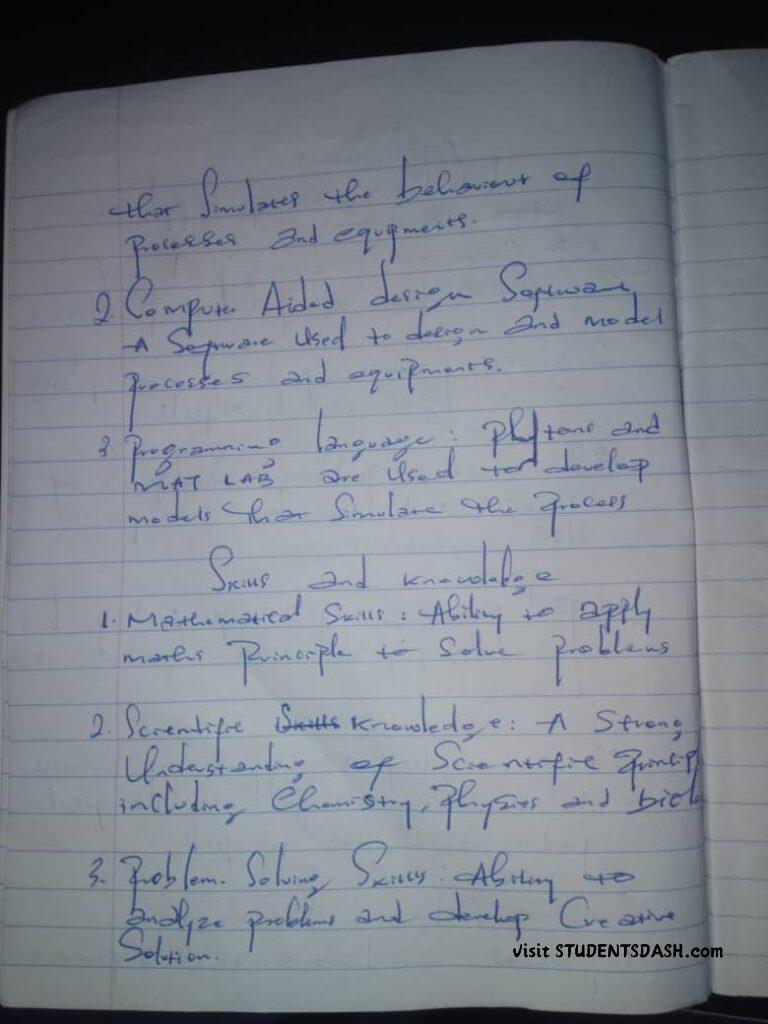 that Simulates the behaviour of
processes and equipments.
2. Computer Aided design Software
A Software Used to design and model
processes and equipments.
3. Programming language: and
MAT LAB are used to develop
models that Simulate the Process
Skills and knowledge
1. Mathematical Skills: Ability to apply
maths Principle to Solve Problems
2. Scientific Skills Knowledge: A Strong
Understanding of Scientific
including Chemistry, Physics and
3. Problem. Solving Skills: Ability to
analyze problems and develop Creative
Solution.
visit STUDENTSDASH.com